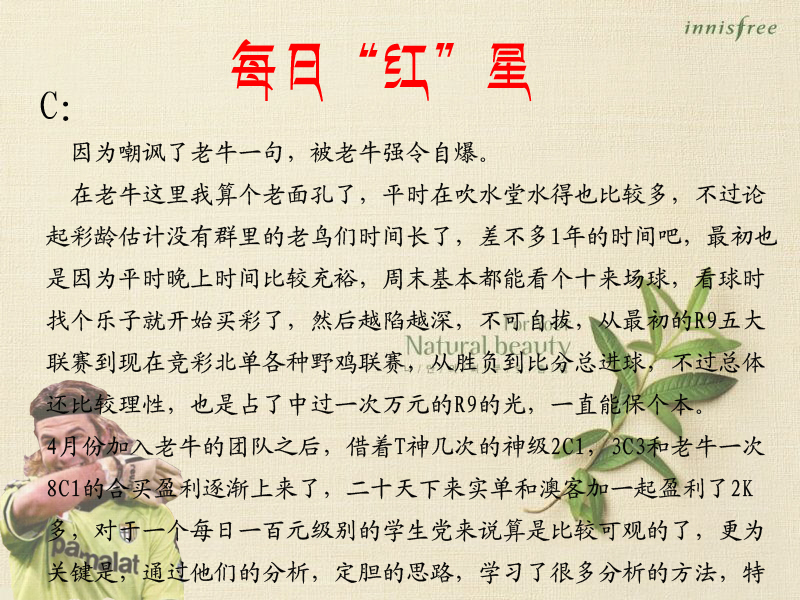 innisfree
每日“红”星
C：
因为嘲讽了老牛一句，被老牛强令自爆。
在老牛这里我算个老面孔了，平时在吹水堂水得也比较多，不过论
起彩龄估计没有群里的老鸟们时间长了，差不多1年的时间吧，最初也
是因为平时晚上时间比较充裕，周末基本都能看个十来场球，看球时
找个乐子就开始买彩了，然后越陷越深，不可自拔，从最初的R9五大
联赛到现在竞彩北单各种野鸡联赛，从胜负到比分总进球，不过总体
还比较理性，也是占了中过一次万元的R9的光，一直能保个本。
4月份加入老牛的团队之后，借着T神几次的神级2C1，3C3和老牛一次
8C1的合买盈利逐渐上来了，二十天下来实单和澳客加一起盈利了2K
多，对于一个每日一百元级别的学生党来说算是比较可观的了，更为
关键是，通过他们的分析，定胆的思路，学习了很多分析的方法，特
Natural beauty
parmalat